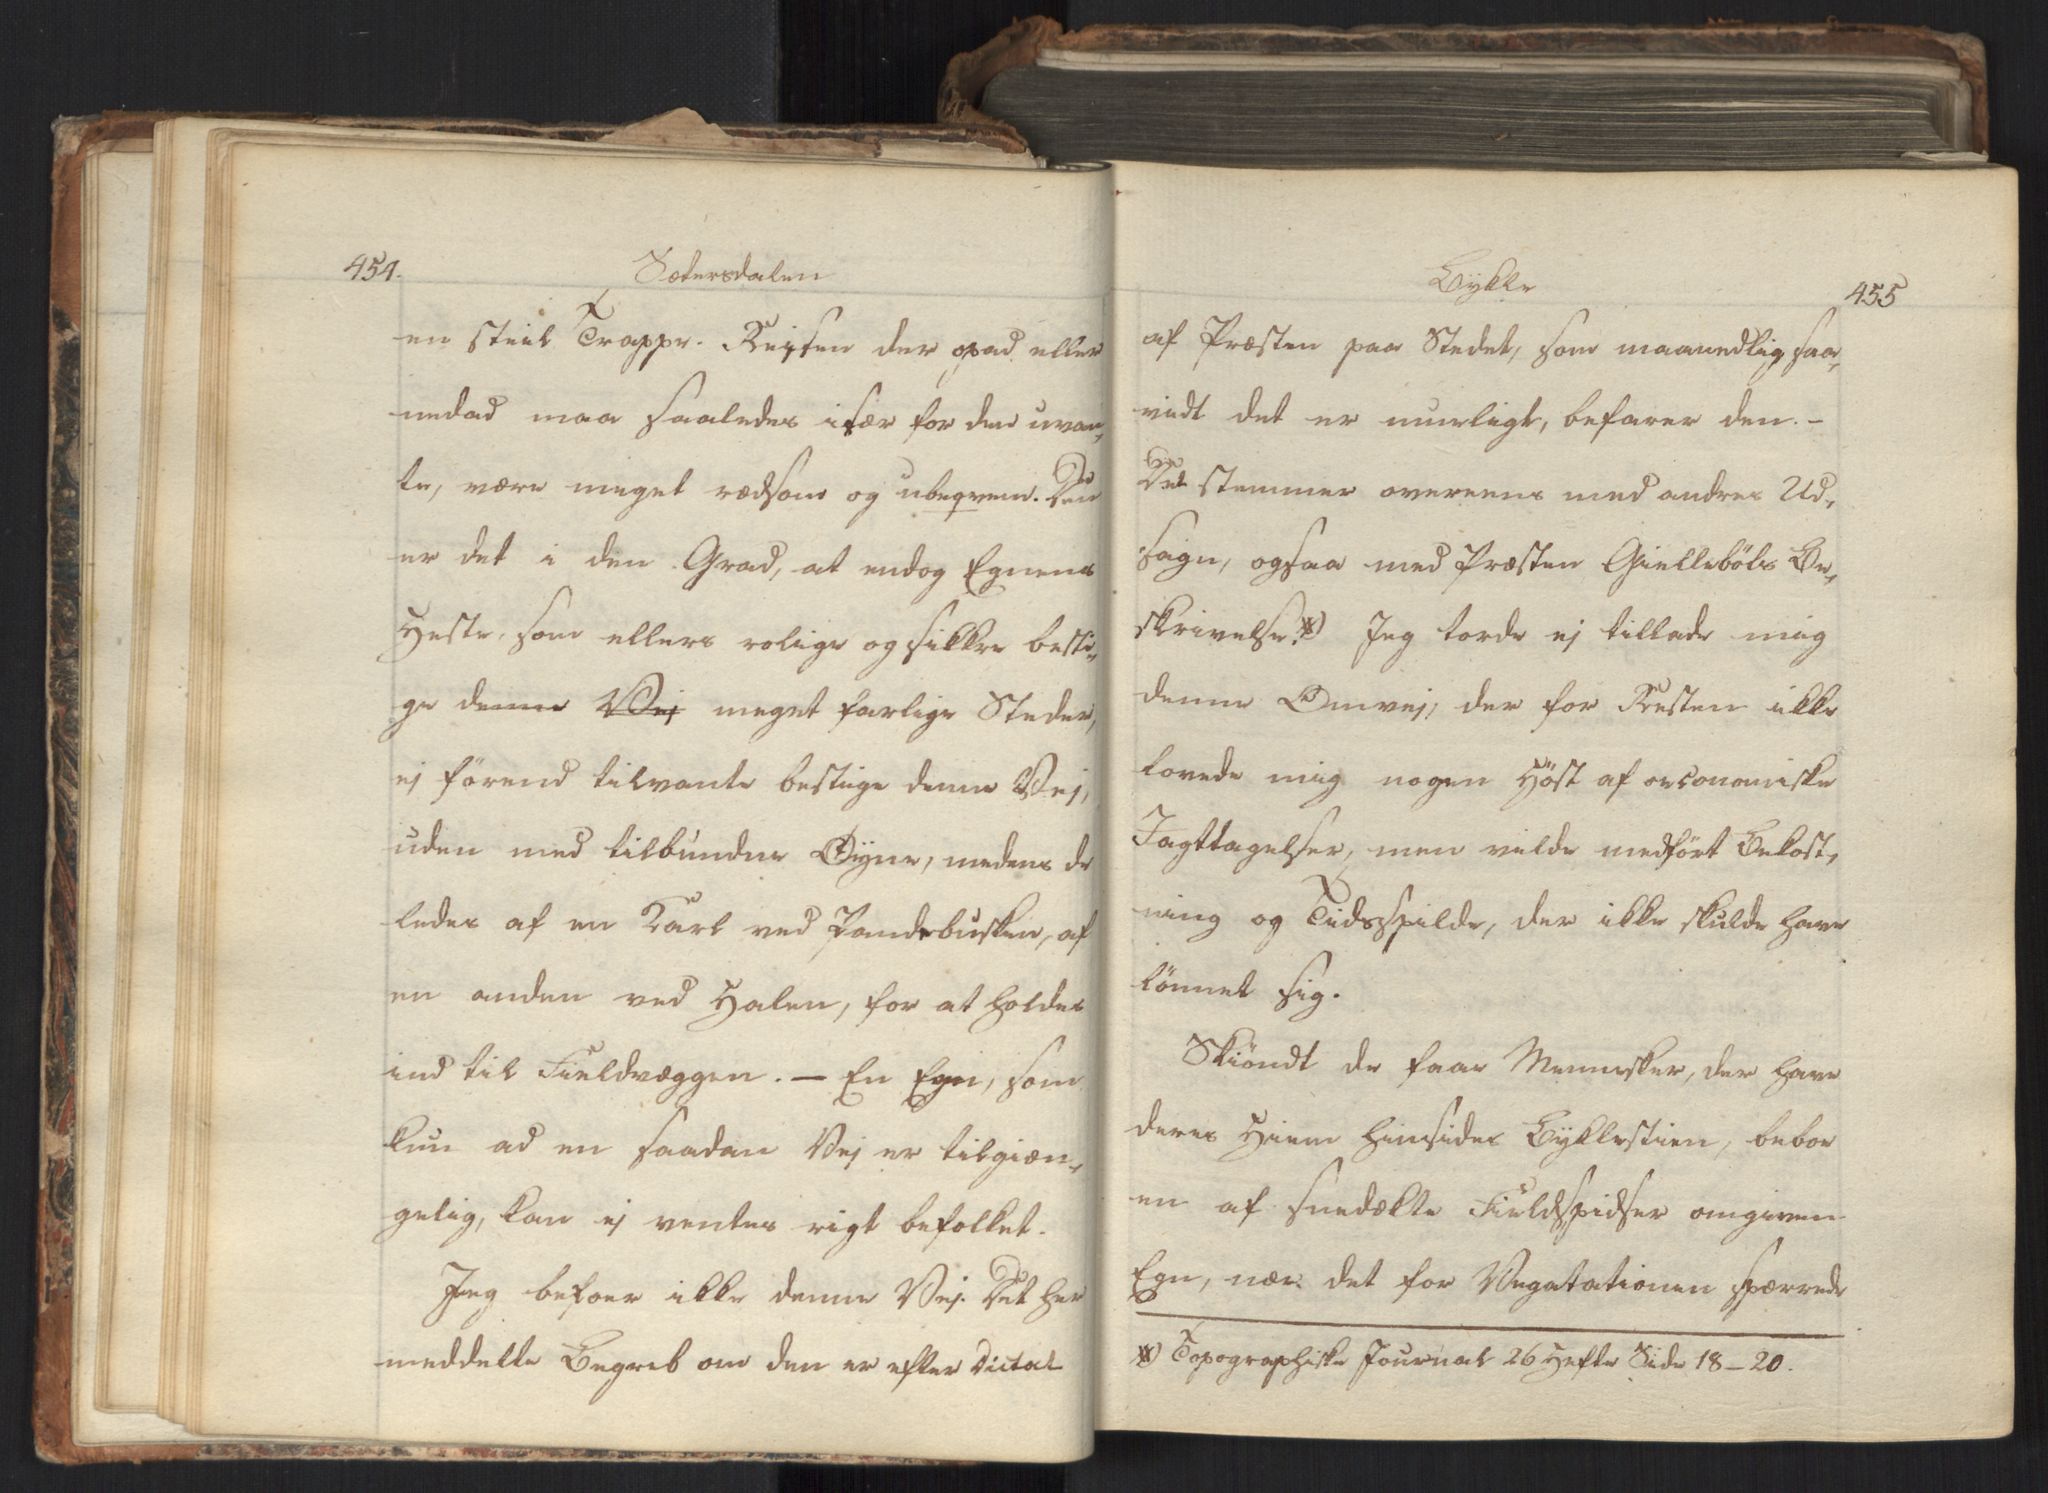 454.
Sætersdalen
en steil Trappe. Reisen der opad eller
nedad maa saaledes især for den uvan,
te, være meget rædsom og ubeqvem. Den
er det i den Grad, at endog Egnens
Heste, som ellers rolige og sikkre besti,
ge denne Vej meget farlige Steder,
ej förend tilvante bestige denne Vej,
uden med tilbundne Øyne, medens de
ledes af en Karl ved Pandebusken, af
en anden ved Halen, for at holdes
ind til Fieldvæggen. — En Egn, som
kun ad en saadan Vej er tilgiæn,
gelig, kan ej ventes rigt befolket.
Jeg befoer ikke denne Vej. Det her
meddelte Begreb om den er efter Dictat
Bykle
455
af Præsten paa Stedet, som maanedlig, saa,
vidt det er mueligt, befarer den. –
Det stemmer overeens med andres Ud,
sagn, ogsaa med Præsten Giellebøls Be,
skrivelse.*) Jeg torde ej tillade mig
denne Omvej, der for Resten ikke
lovede mig nogen Höst af oeconomiske
Iagttagelser, men vilde medfört Bekost,
ning og Tidsspilde, der ikke skulde have
lönnet sig.
Skiöndt de faae Mennesker, der have
deres Hiem hinsides Byklestien, beboe
en af sneedækte Fieldspidser omgiven
Egn, nær det for Vegatationen spærrede
*) Topographiske Journal 26 Hefte Side 18–20.